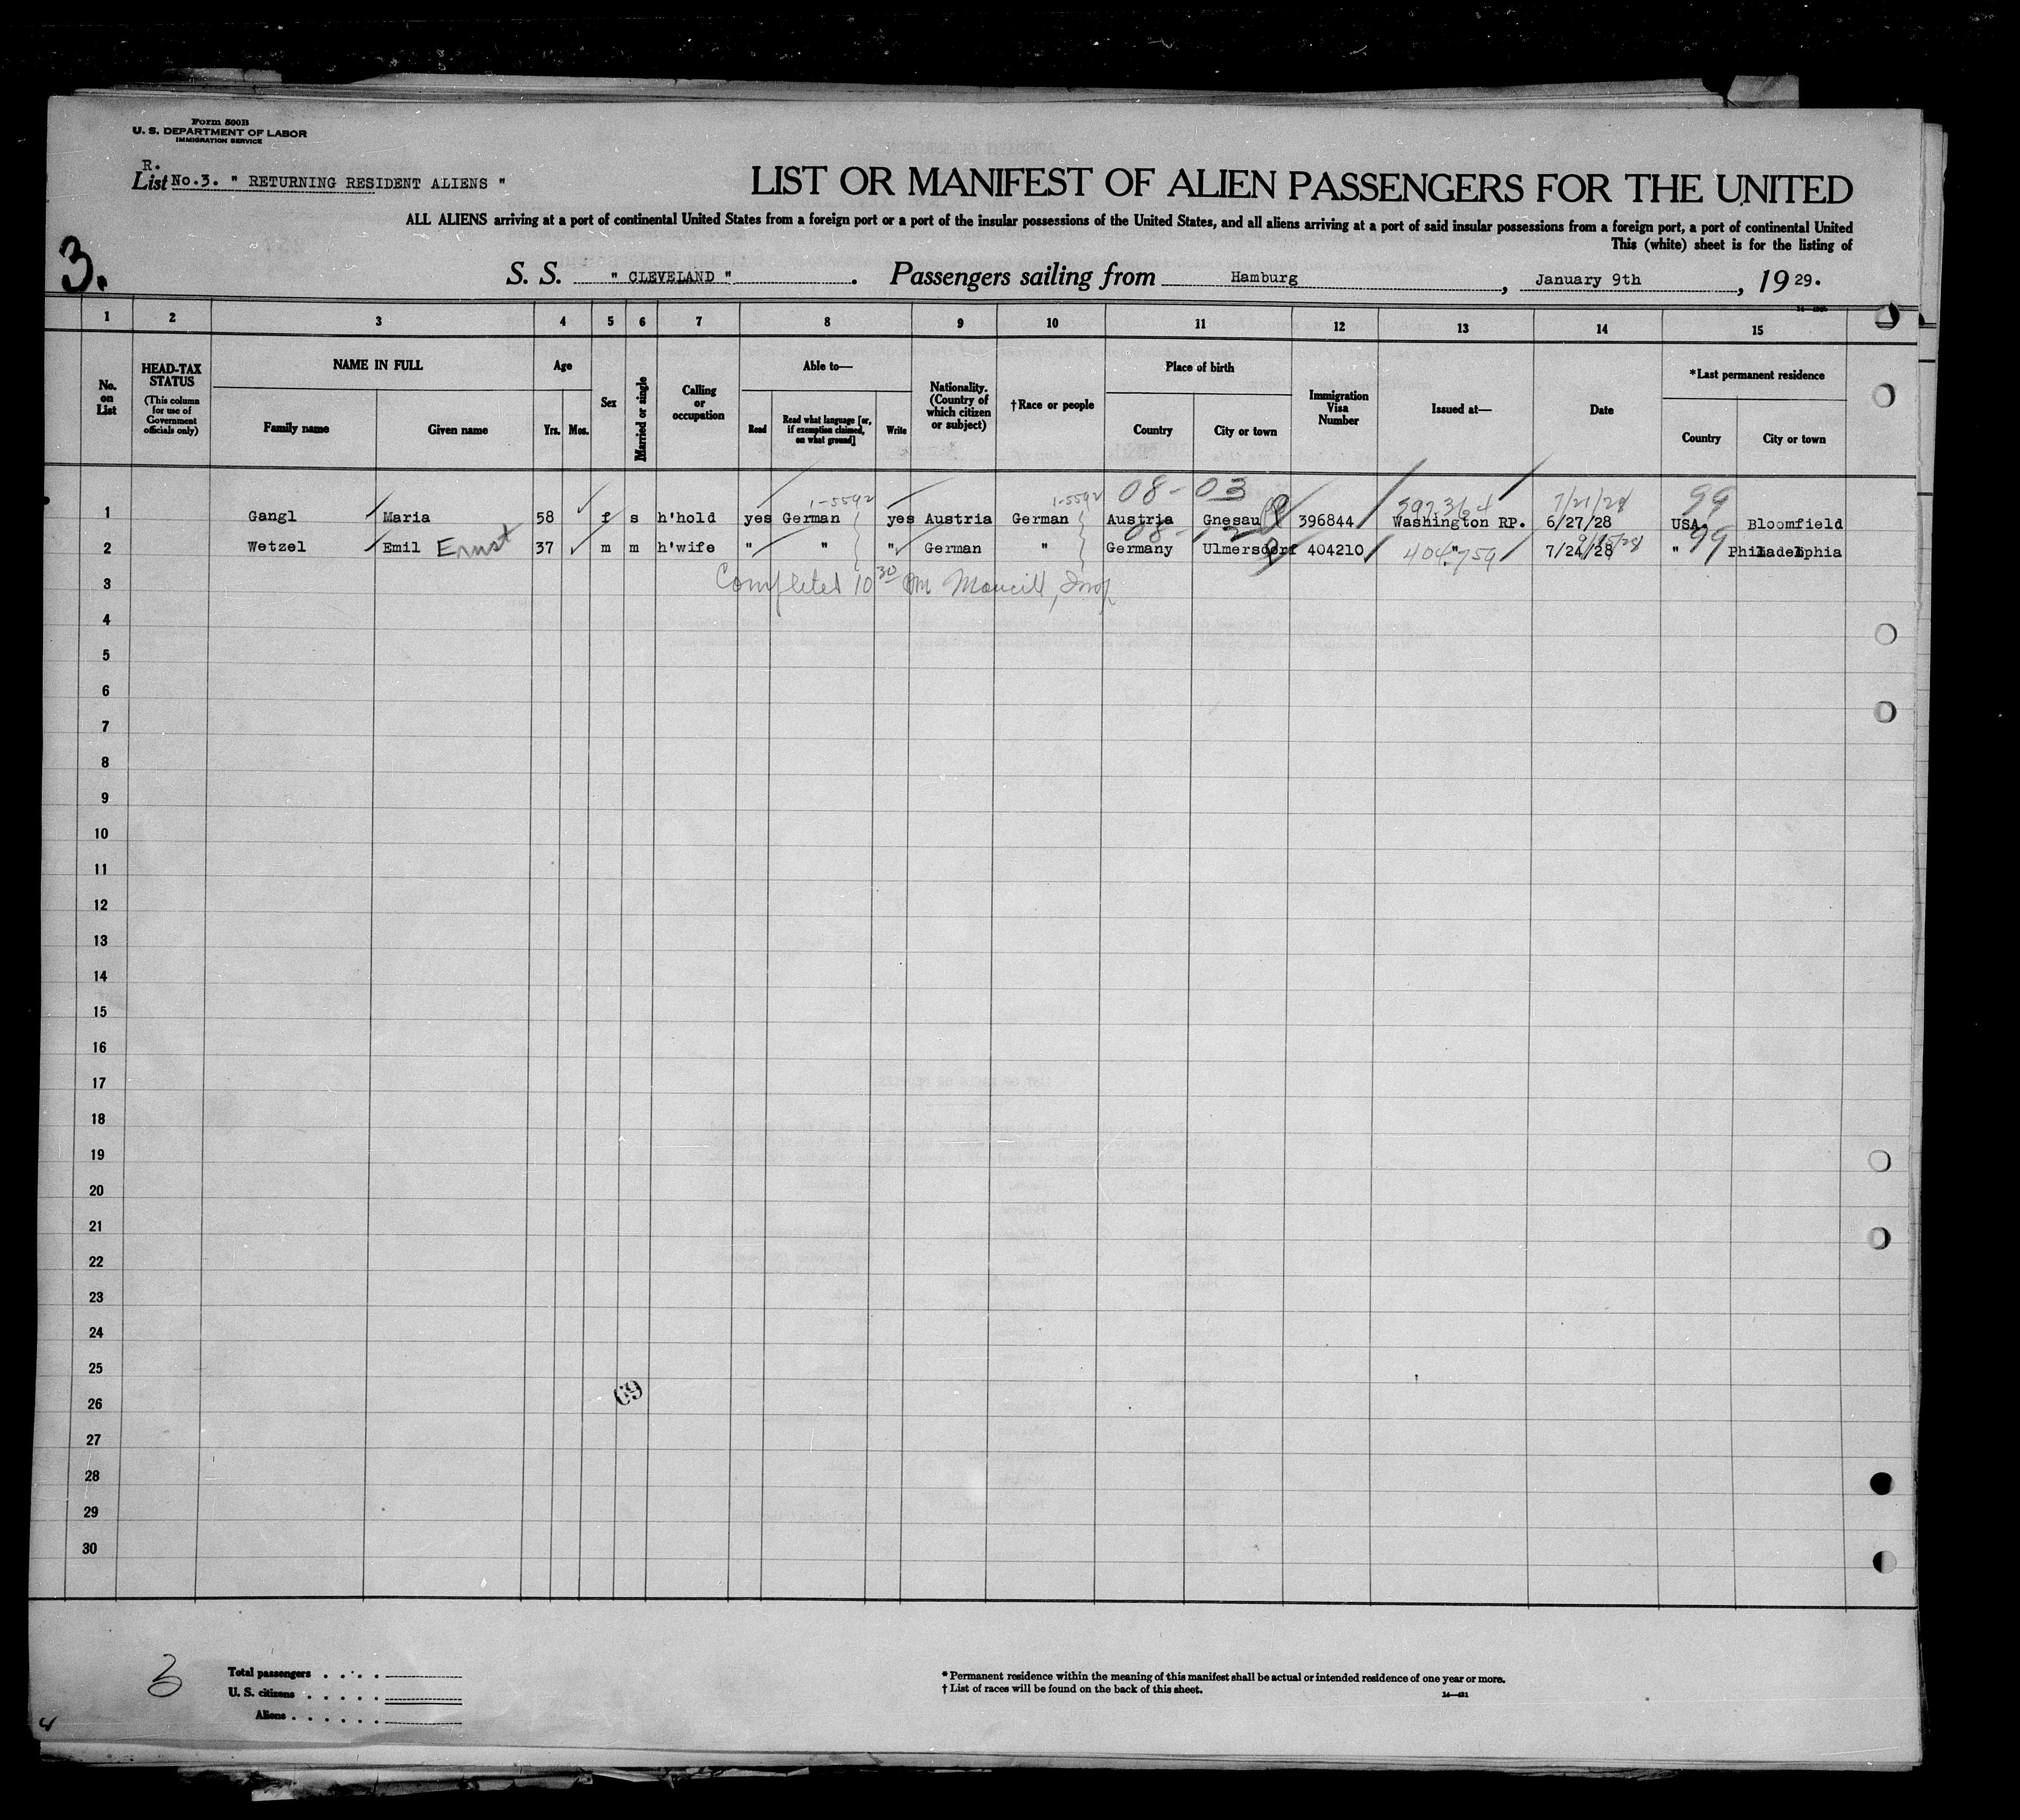 Form 500B
U. S. DEPARTMENT OF LABOR
IMMIGRATION SERVICE
R.
List No.3. " RETURNING RESIDENT ALIENS "
LIST OR MANIFEST OF ALIEN PASSENGERS FOR THE UNITED
ALL ALIENS arriving at a port of continental United States from a foreign port or a port of the insular possessions of the United States, and all aliens arriving at a port of said insular possessions from a foreign port, a port of continental United
This (white) sheet is for the listing of
3.
S. S. " CLEVELAND " . Passengers sailing from Hamburg , January 9th , 19 29.
1 2 3 4 5 6 7 8 9 10 11 12 13 14 15
No. on List
HEAD-TAX STATUS
(This column for use of Government officials only)
NAME IN FULL
Family name Given name
Age
Yrs. Mos.
Sex
Married or single
Calling or occupation
Able to—
Read Read what language [or, if exemption claimed, on what ground] Write
Nationality. (Country of which citizen or subject)
†Race or people
Place of birth
Country City or town
Immigration Visa Number
Issued at—
Date
*Last permanent residence
Country City or town
1-5592 1-5592 08-03 397364 7/21/28 99
1 Gangl Maria 58 f s h'hold yes German yes Austria German Austria Gnesau 396844 Washington RP. 6/27/28 USA. Bloomfield
2 Wetzel Emil Ernst 37 m m h'wife " " " German " Germany Ulmersdorf 404210 " 7/24/28 " Philadelphia
08- 2 404759 99
3 Completed 10 30
4
5
6
7
8
9
10
11
12
13
14
15
16
17
18
19
20
21
22
23
24
25
26
27
28
29
30
69
3
Total passengers . . . .
U. S. citizens . . . . .
Aliens . . . . . .
* Permanent residence within the meaning of this manifest shall be actual or intended residence of one year or more.
† List of races will be found on the back of this sheet.
14—421